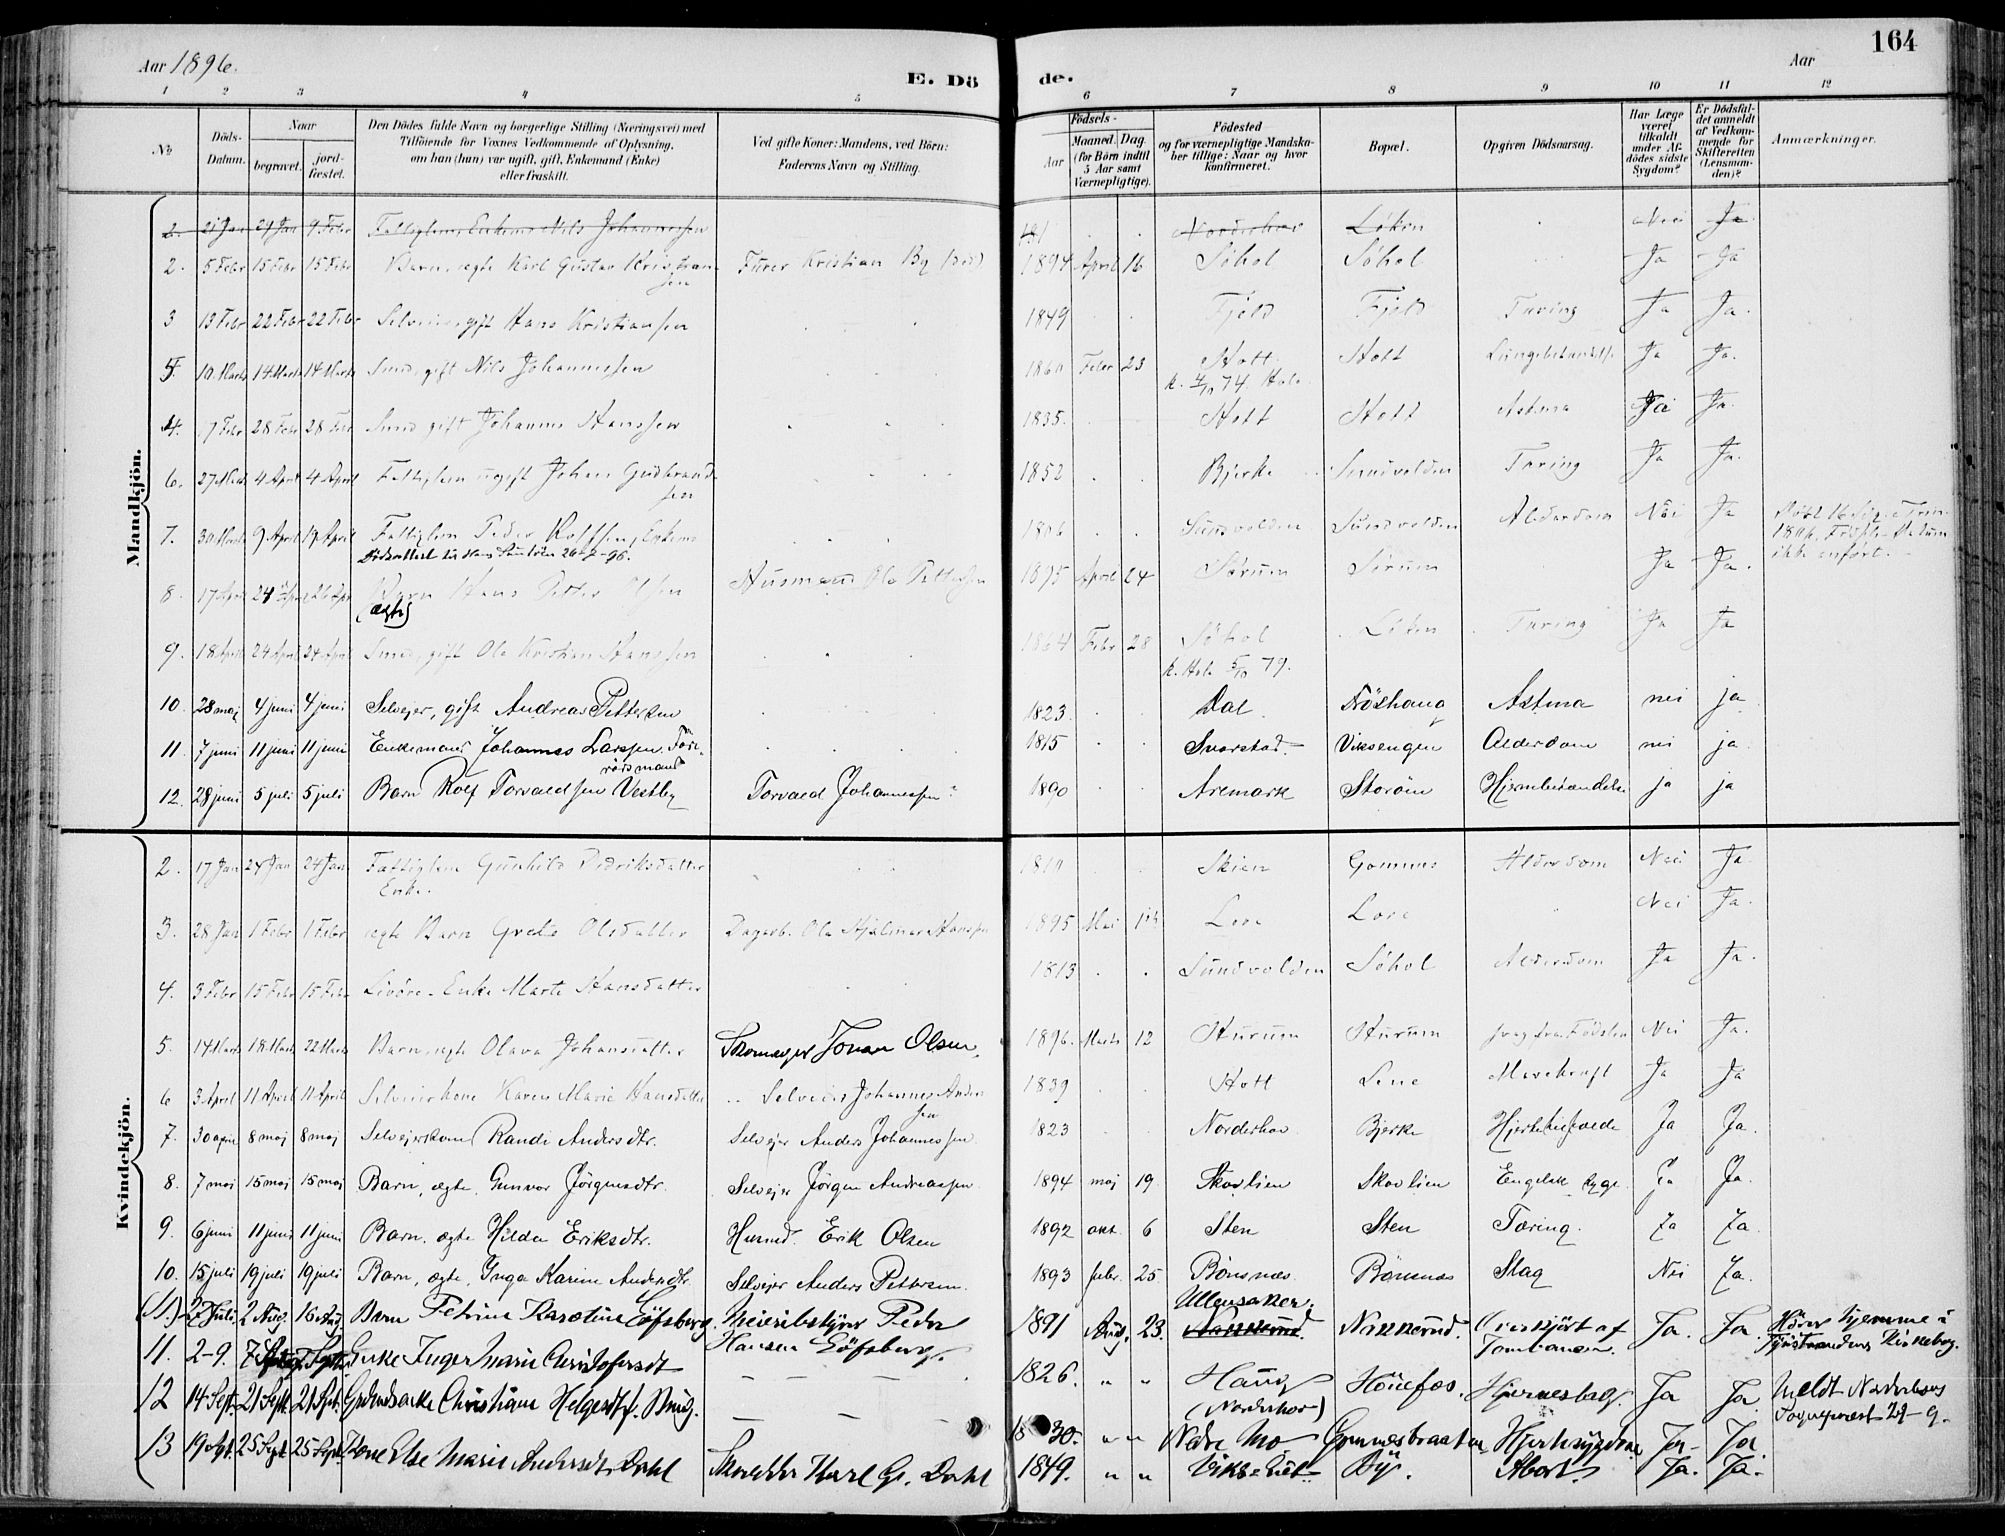 Aar 1896.
E. Dö
de.
Aar
164
1 2 3 4 5 6 7 8 9 10 11 12
No
Döds-Datum.
Naar
begravet.
jordfæstet.
Den Dödes fulde Navn og borgerlige Stilling (Næringsvei) med
Tilföiende for Voxnes Vedkommende af Oplysning,
om han (hun) var ugift, gift, Enkemand (Enke)
eller fraskilt.
Ved gifte Koner: Mandens, ved Börn:
Faderens Navn og Stilling.
Födsels-
Aar
Maaned. Dag.
(for Börn indtil
5 Aar samt
Værnepligtige).
Födested
og for værnepligtige Mandska-
ber tillige: Naar og hvor
konfirmeret.
Bopæl.
Opgiven Dödsaarsag.
Har Læge
været
tilkaldt
under Af-
dödes sidste
Sygdom?
Er Dödsfal-
det anmeldt
af Vedkom-
mende for
Skifteretten
(Lensman-
den)?
Anmærkninger.
Mandkjön.
2. 21 Jan 29 Jan 9 Febr Fattiglem, Enkem. Nils Johannessen Norderhov Løken Nei Ja
2. 5 Febr 15 Febr 15 Febr Barn, ægte Karl Gustav Kristiansen Furer Kristian By 1894 April 16 Søhol Søhol Ja Ja
3 13 Febr 22 Febr 22 Febr Selveier, gift Hans Kristiansen 1849 Fjeld Fjeld Tæring Ja Ja.
5. 10 Marts 14 Marts 14 Marts Smed, gift Nils Johannessen 1860 Febr 23 Stott Stott Lungebetændelse Ja Ja.
k. 4/10 74. Hole
4. 7 Febr 28 Febr 28 Febr Smed gift Johannes Hanssen 1835. Stott Stott Astma Ja Ja.
6. 27 Marts 4 April 4 April Fattiglem ugift Johan Gudbrandsen 1852 Bjerke Sundvolden Tæring Ja Ja.
7. 30 Marts 9 April 19 April Fattiglem Peder Rolfsen, Enkem. 1806 Sundvolden Sundvolden Alderdom Nei Ja
ikke anført.
8. 17 April 24 April 26 Apr Barn Hans Petter Olsen Husmand Ola Pettersen 1895 April 24 Sørum Sørum Ja Ja.
(ægte)
9. 18 April 24 April 24 April Smed, gift Ole Kristian Hanssen 1864 Febr 28 Søhol Løken Tæring Ja Ja
k. Hole 5/10 79.
10. 28 maj 4 juni 4 juni Selvejer, gift Andreas Pettersen 1823. Dal Fröshaug Astma nei ja
11. 7 juni 11 juni 11 juni Enkemand Johannes Larssen. Föderådsmand 1815 Svarstad.- Viksengen Alderdom nei ja
12. 28 juni 5 juli 5 juli Barn Rolf Torvaldsen Vestby Torvald Johannessen 1890 Aremark Storöen Hjernebetændelse ja ja
Kvindekjön.
2. 17 Jan 24 Jan 24 Jan Fattiglem Gunhild Didriksdatter Skien Gomnes Alderdom Nei Ja
Enke.
3. 28 Jan 1 Febr 1 Febr ægte Barn Grete Olsdatter Dagarb. Ole Hjalmar Hanssen 1895 Mai Lore Lore Nei Ja.
4. 3 Febr 15 Febr 15 Febr Enke Marte Hansdatter 1813 Sundvolden Søhol Alderdom Ja Ja.
5. 14 Marts 18 Marts 22 Marts Barn, ægte Olava Johansdatter Skomager Johan Olsen. 1896. Marts 12 Hurum Hurum svag fra Fødslen Nei Ja.
6 3 April 11 April 11 April Selveierkone Karen Marie Hansdatter Selveier Johannes Andersen 1839 Stott Lene Mavekræft Ja Ja
7. 30 april 8 maj 8 maj Selvejerkone Randi Andersdtr. Selvejer Anders Johannessen 1823 Norderhov Bjerke Ja Ja.
8. 7 maj 15 maj 15 maj Barn, ægte. Gunvor Jörgensdtr. Selvejer Jörgen Andreassen. 1894 maj 19 Skovlien Skovlien Engelsk syge. Ja Ja.
9. 6 juni 11 juni 11 juni Barn. ægte Hilda Eriksdtr. Husmd. Erik Olsen 1892 okt. 6 Sten Sten Tæring. Ja Ja.
10. 15 juli 19 juli 19 juli Barn, ægte. Inga Karine Andersdtr. Selvejer Anders Pettersen. 1893 febr. 25 Bönsnæs Bönsnæs Slag Nei Ja.
(11.) 22 Juli. 2 Aug. 16 Aug. Barn Petrine Karoline Göfsberg. Meieribestyrer Peder Hansen Göfsberg. 1891 Aug. 23. Ullensaker. Nakkerud. Nakkerud. Overkjørt af Tømbanen. Ja. Ja. Hører hjemme i Tyristrandens Kirkebog.
11. 2-9. 7 Sept. Enke Inger Marie Christofersdt — — — 1826. " " Haug (Norderhov) Hönefos. Hjerneslag. Ja Ja. Meldt Norderhovs Sogneprest 29-9.
12 14 Sept. 21 Sept. 21 Spt. Christiane Helgesdt f. — — — 1830. " " Nedre Mo Gomnesbraaten Hjertesygdom Ja- Ja.
13 19 Spt. 25 Sept 25 Sept. Kone Else Marie Andersdt. Dahl Skrædder Karl G. Dahl 1849. " " By. Abort. Ja. Ja.